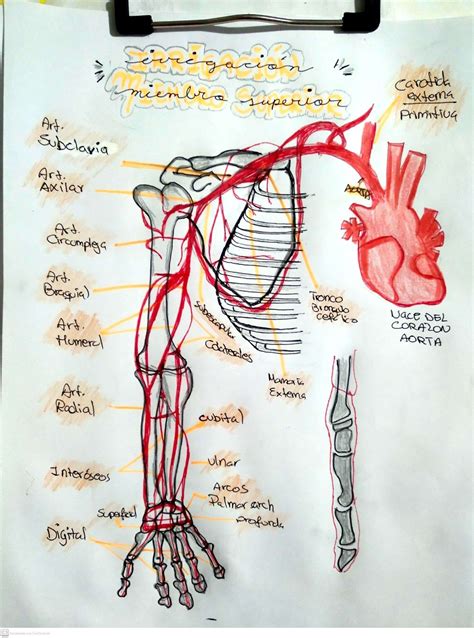 irrigación
miembro superior
Carotida
externa
Primitiva
Art.
Subclavia
Art.
Axilar
Aorta
Art.
Circumpleja
Art.
Braquial
Art.
Humeral
Subescapular
Colaterales
Tronco
Braquio
Cefalico
NACE DEL
CORAZON
AORTA
Mamaria
Externa
Art.
Radial
cubital
Interóseos
ulnar
Arcos
Palmar arch
Superficial
Profunda
Digital